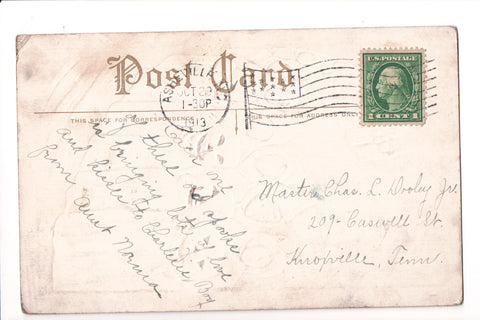 Post Card
THIS SPACE FOR CORRESPONDENCE
THIS SPACE FOR ADDRESS ONLY
ASHEVILLE
OCT 29
1-30P
1913
U.S. POSTAGE
1 CENT 1
me
of these old spooks
is bringing lots of love
and kisses to Charlie Boy
from Aunt Norma
Master Chas. L. Dooley Jr.
209- Caswell St.
Knoxville, Tenn.